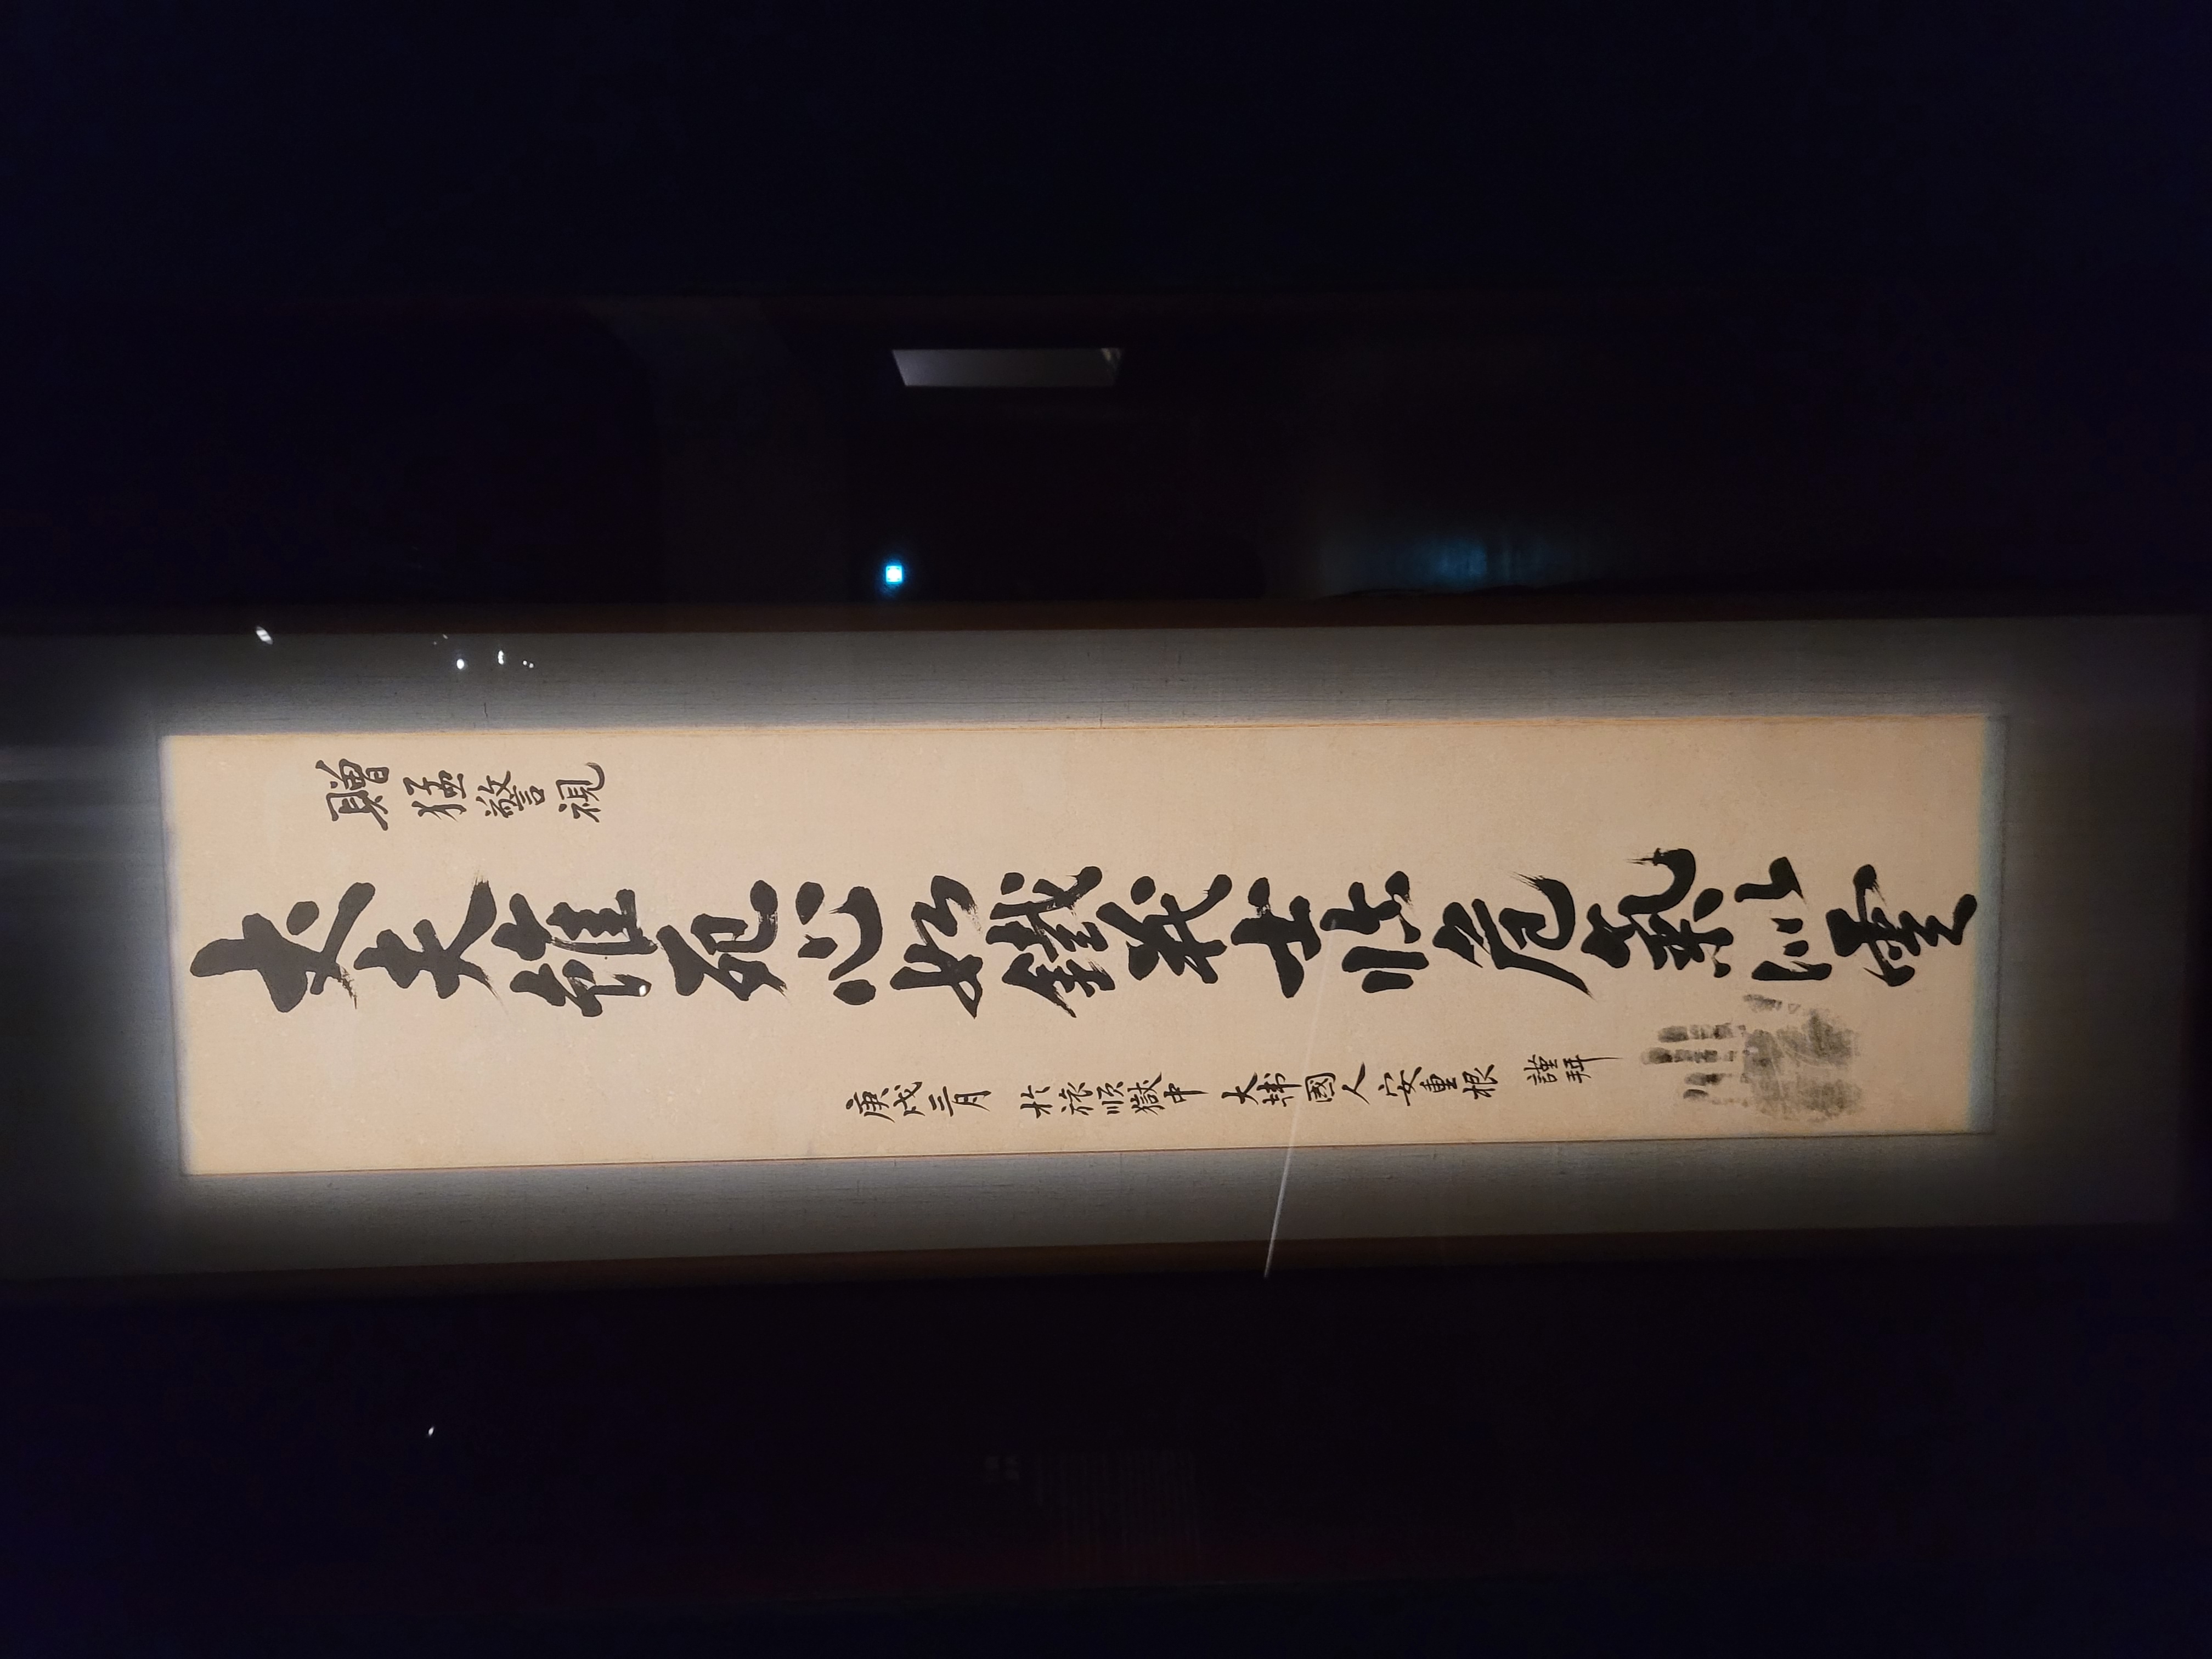 贈猛警視
丈夫雖死心如鐵義士臨危氣似雲
庚戌三月 於旅順獄中 大韓國人安重根 謹拜